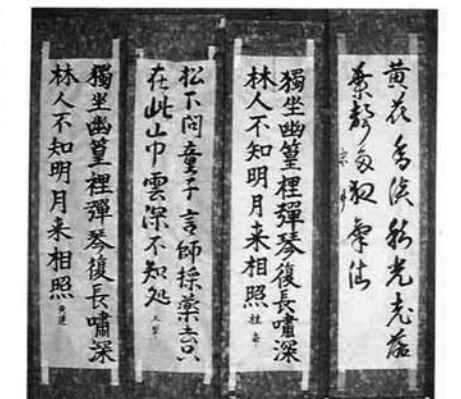 黄花香淡秋光老落
葉聲多夜氣清
獨坐幽篁裡彈琴復長嘯深
林人不知明月来相照
松下問童子言師採薬去只
在此山中雲深不知処
獨坐幽篁裡彈琴復長嘯深
林人不知明月来相照